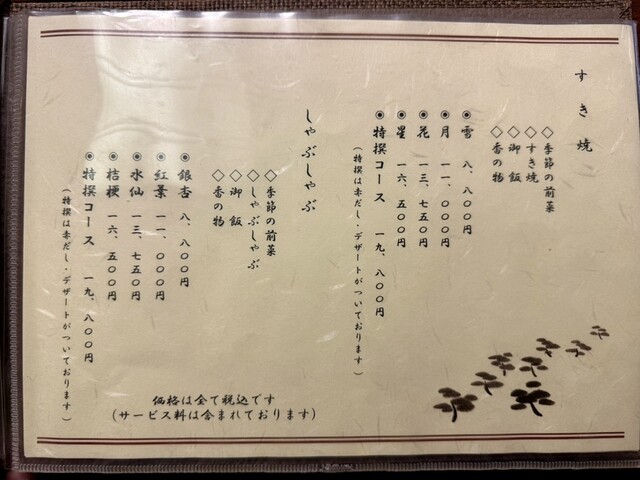 すき焼
◇季節の前菜
◇すき焼
◇御飯
◇香の物
◉雪 八、八〇〇円
◉月 一一、〇〇〇円
◉花 一三、七五〇円
◉星 一六、五〇〇円
◉特撰コース 一九、八〇〇円
(特撰は赤だし・デザートがついております)
しゃぶしゃぶ
◇季節の前菜
◇しゃぶしゃぶ
◇御飯
◇香の物
◉銀杏 八、八〇〇円
◉紅葉 一一、〇〇〇円
◉水仙 一三、七五〇円
◉桔梗 一六、五〇〇円
◉特撰コース 一九、八〇〇円
(特撰は赤だし・デザートがついております)
価格は全て税込です
(サービス料は含まれております)